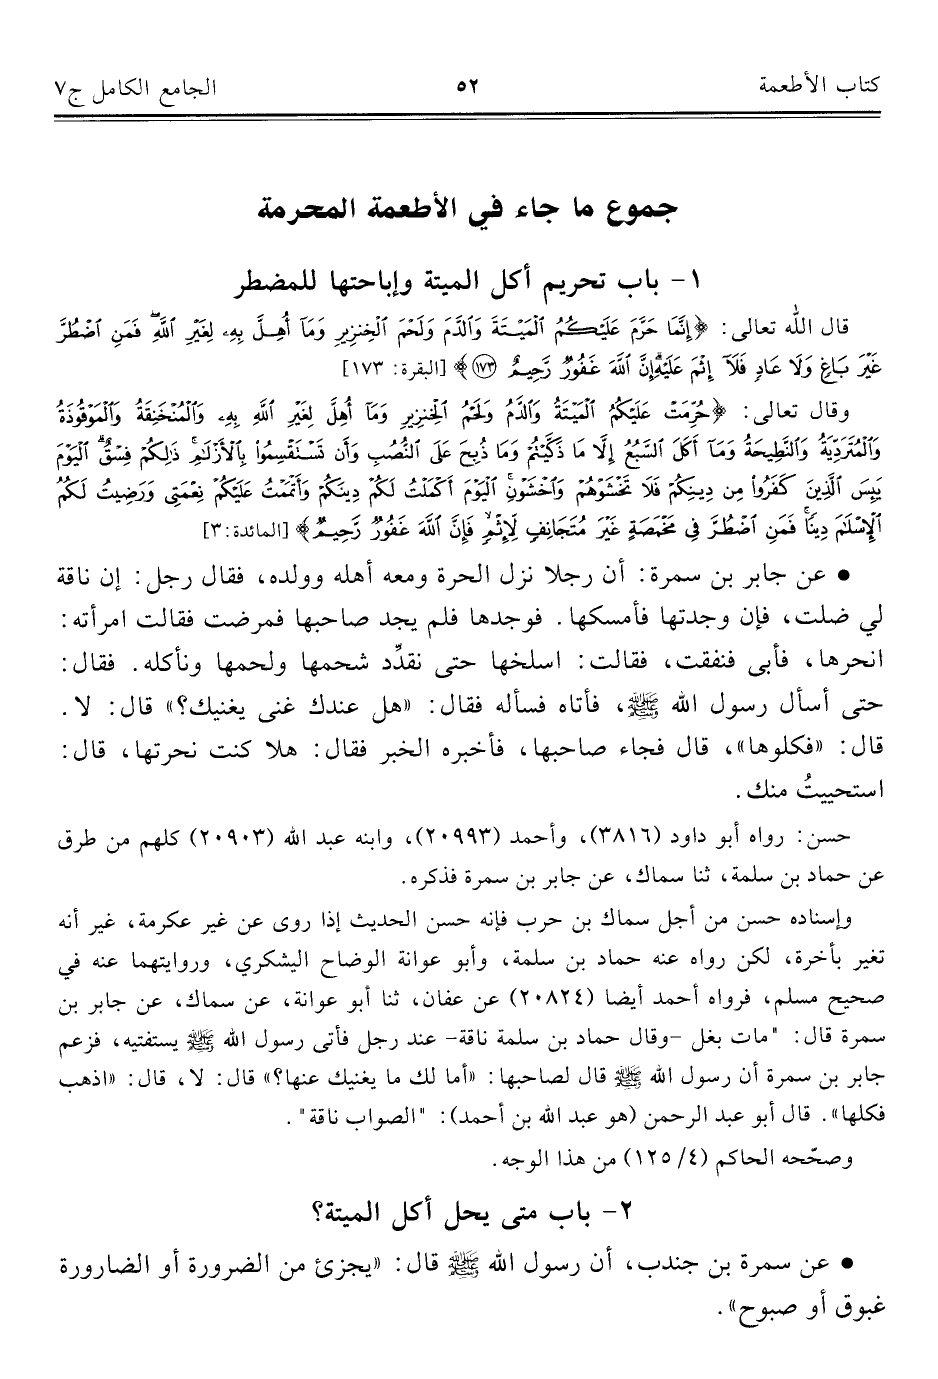 كتاب الأطعمة ٥٢ الجامع الكامل ج٧
جموع ما جاء في الأطعمة المحرمة
١- باب تحريم أكل الميتة وإباحتها للمضطر
قال الله تعالى: ﴿إِنَّمَا حَرَّمَ عَلَيْكُمُ الْمَيْتَةَ وَالدَّمَ وَلَحْمَ الْخِنزِيرِ وَمَا أُهِلَّ بِهِ لِغَيْرِ اللَّهِ فَمَنِ اضْطُرَّ
غَيْرَ بَاغٍ وَلَا عَادٍ فَلَا إِثْمَ عَلَيْهِ إِنَّ اللَّهَ غَفُورٌ رَّحِيمٌ ١٧٣﴾ [البقرة: ١٧٣]
وقال تعالى: ﴿حُرِّمَتْ عَلَيْكُمُ الْمَيْتَةُ وَالدَّمُ وَلَحْمُ الْخِنزِيرِ وَمَا أُهِلَّ لِغَيْرِ اللَّهِ بِهِ وَالْمُنْخَنِقَةُ وَالْمَوْقُوذَةُ
وَالْمُتَرَدِّيَةُ وَالنَّطِيحَةُ وَمَا أَكَلَ السَّبُعُ إِلَّا مَا ذَكَّيْتُمْ وَمَا ذُبِحَ عَلَى النُّصُبِ وَأَن تَسْتَقْسِمُوا بِالْأَزْلَامِ ذَٰلِكُمْ فِسْقٌ الْيَوْمَ
يَئِسَ الَّذِينَ كَفَرُوا مِن دِينِكُمْ فَلَا تَخْشَوْهُمْ وَاخْشَوْنِ الْيَوْمَ أَكْمَلْتُ لَكُمْ دِينَكُمْ وَأَتْمَمْتُ عَلَيْكُمْ نِعْمَتِي وَرَضِيتُ لَكُمُ
الْإِسْلَامَ دِينًا فَمَنِ اضْطُرَّ فِي مَخْمَصَةٍ غَيْرَ مُتَجَانِفٍ لِّإِثْمٍ فَإِنَّ اللَّهَ غَفُورٌ رَّحِيمٌ﴾ [المائدة: ٣]
• عن جابر بن سمرة: أن رجلا نزل الحرة ومعه أهله وولده، فقال رجل: إن ناقة
لي ضلت، فإن وجدتها فأمسكها. فوجدها فلم يجد صاحبها فمرضت فقالت امرأته:
انحرها، فأبى فنفقت، فقالت: اسلخها حتى نقدِّد شحمها ولحمها ونأكله. فقال:
حتى أسأل رسول الله ﷺ، فأتاه فسأله فقال: «هل عندك غنى يغنيك؟» قال: لا.
قال: «فكلوها»، قال فجاء صاحبها، فأخبره الخبر فقال: هلا كنت نحرتها، قال:
استحييتُ منك.
حسن: رواه أبو داود (٣٨١٦)، وأحمد (٢٠٩٩٣)، وابنه عبد الله (٢٠٩٠٣) كلهم من طرق
عن حماد بن سلمة، ثنا سماك، عن جابر بن سمرة فذكره.
وإسناده حسن من أجل سماك بن حرب فإنه حسن الحديث إذا روى عن غير عكرمة، غير أنه
تغير بأخرة، لكن رواه عنه حماد بن سلمة، وأبو عوانة الوضاح اليشكري، وروايتهما عنه في
صحيح مسلم، فرواه أحمد أيضا (٢٠٨٢٤) عن عفان، ثنا أبو عوانة، عن سماك، عن جابر بن
سمرة قال: "مات بغل -وقال حماد بن سلمة ناقة- عند رجل فأتى رسول الله ﷺ يستفتيه، فزعم
جابر بن سمرة أن رسول الله ﷺ قال لصاحبها: «أما لك ما يغنيك عنها؟» قال: لا، قال: «اذهب
فكلها». قال أبو عبد الرحمن (هو عبد الله بن أحمد): "الصواب ناقة".
وصحّحه الحاكم (٤/ ١٢٥) من هذا الوجه.
٢- باب متى يحل أكل الميتة؟
• عن سمرة بن جندب، أن رسول الله ﷺ قال: «يجزئ من الضرورة أو الضارورة
غبوق أو صبوح».